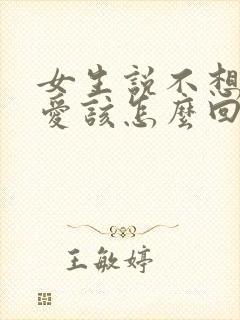 女生說不想
愛該怎麼回
王敏婷